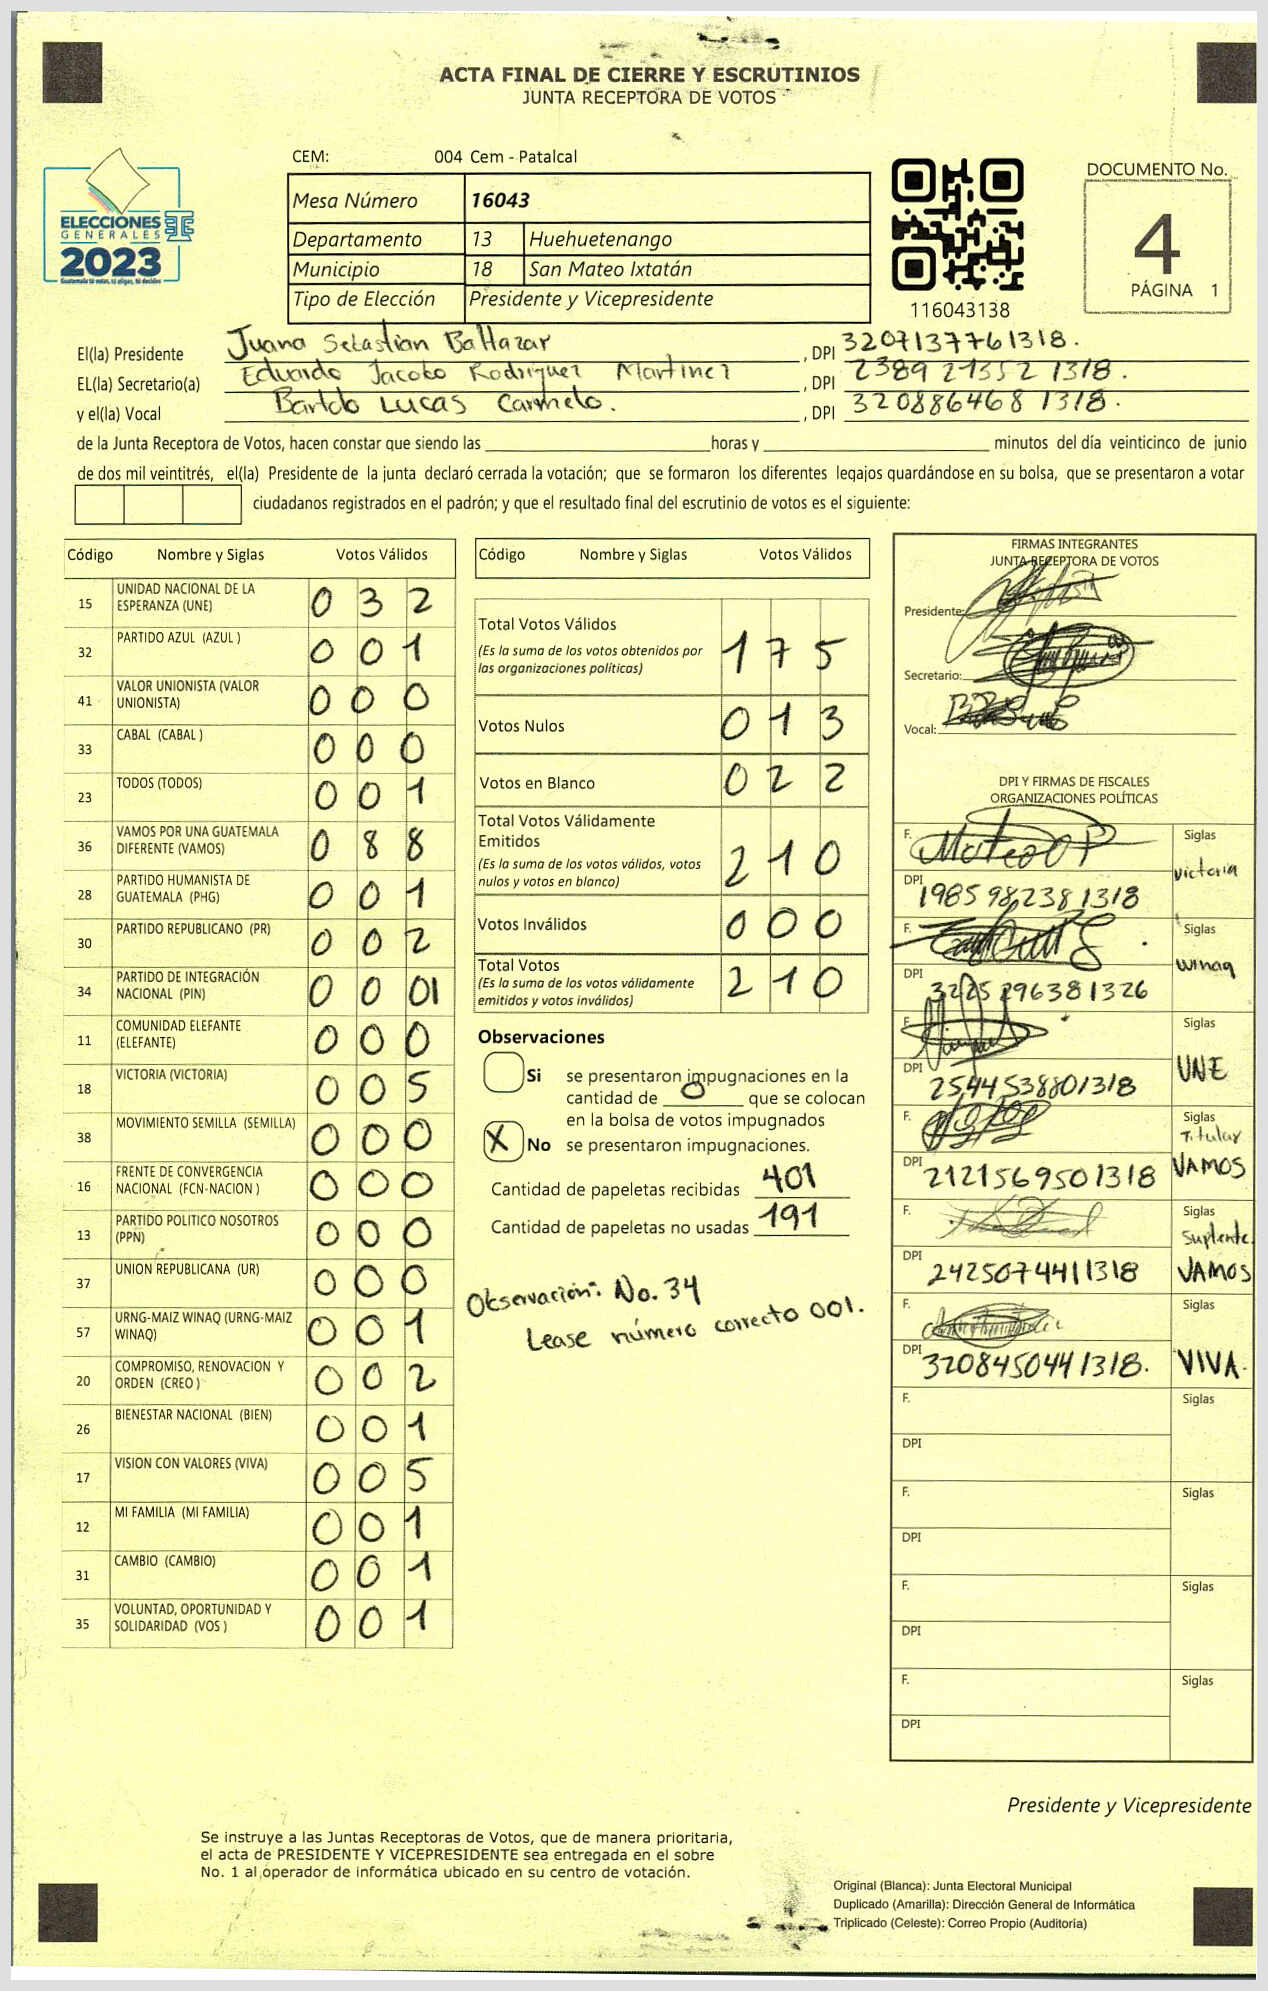 ACTA FINAL DE CIERRE Y ESCRUTINIOS
JUNTA RECEPTORA DE VOTOS
ELECCIONES
GENERALES
2023
Guatemala tú votas, tú eliges, tú decides
CEM: 004 Cem - Patalcal
Mesa Número 16043
Departamento 13 Huehuetenango
Municipio 18 San Mateo Ixtatán
Tipo de Elección Presidente y Vicepresidente
116043138
DOCUMENTO No.
4
PÁGINA 1
El(la) Presidente Juana Sebastian Baltazar, DPI 3207137761318.
EL(la) Secretario(a) Eduardo Jacobo Rodriguez Martinez, DPI 2389 21552 1318.
y el(la) Vocal Bartolo Lucas Carmelo., DPI 320886468 1318.
de la Junta Receptora de Votos, hacen constar que siendo las horas y minutos del día veinticinco de junio
de dos mil veintitrés, el(la) Presidente de la junta declaró cerrada la votación; que se formaron los diferentes legajos guardándose en su bolsa, que se presentaron a votar
ciudadanos registrados en el padrón; y que el resultado final del escrutinio de votos es el siguiente:
Código Nombre y Siglas Votos Válidos
15 UNIDAD NACIONAL DE LA ESPERANZA (UNE) 0 3 2
32 PARTIDO AZUL (AZUL ) 0 0 1
41 VALOR UNIONISTA (VALOR UNIONISTA) 0 0 0
33 CABAL (CABAL ) 0 0 0
23 TODOS (TODOS) 0 0 1
36 VAMOS POR UNA GUATEMALA DIFERENTE (VAMOS) 0 8 8
28 PARTIDO HUMANISTA DE GUATEMALA (PHG) 0 0 1
30 PARTIDO REPUBLICANO (PR) 0 0 2
34 PARTIDO DE INTEGRACIÓN NACIONAL (PIN) 0 0 01
11 COMUNIDAD ELEFANTE (ELEFANTE) 0 0 0
18 VICTORIA (VICTORIA) 0 0 5
38 MOVIMIENTO SEMILLA (SEMILLA) 0 0 0
16 FRENTE DE CONVERGENCIA NACIONAL (FCN-NACION ) 0 0 0
13 PARTIDO POLITICO NOSOTROS (PPN) 0 0 0
37 UNION REPUBLICANA (UR) 0 0 0
57 URNG-MAIZ WINAQ (URNG-MAIZ WINAQ) 0 0 1
20 COMPROMISO, RENOVACION Y ORDEN (CREO ) 0 0 2
26 BIENESTAR NACIONAL (BIEN) 0 0 1
17 VISION CON VALORES (VIVA) 0 0 5
12 MI FAMILIA (MI FAMILIA) 0 0 1
31 CAMBIO (CAMBIO) 0 0 1
35 VOLUNTAD, OPORTUNIDAD Y SOLIDARIDAD (VOS ) 0 0 1
Código Nombre y Siglas Votos Válidos
Total Votos Válidos 1 7 5
(Es la suma de los votos obtenidos por
las organizaciones políticas)
Votos Nulos 0 1 3
Votos en Blanco 0 2 2
Total Votos Válidamente
Emitidos 2 1 0
(Es la suma de los votos válidos, votos
nulos y votos en blanco)
Votos Inválidos 0 0 0
Total Votos 2 1 0
(Es la suma de los votos válidamente
emitidos y votos inválidos)
Observaciones
Si se presentaron impugnaciones en la
cantidad de 0 que se colocan
en la bolsa de votos impugnados
X No se presentaron impugnaciones.
Cantidad de papeletas recibidas 401
Cantidad de papeletas no usadas 191
Observación: No. 34
Lease número correcto 001.
FIRMAS INTEGRANTES
JUNTA RECEPTORA DE VOTOS
Presidente:
Secretario:
Vocal:
DPI Y FIRMAS DE FISCALES
ORGANIZACIONES POLÍTICAS
F. Mateo Siglas victoria
DPI 1985 98238 1318
F. Siglas winaq
DPI 3225 296381326
F. Siglas UNE
DPI 2544538801318
F. Siglas Titular VAMOS
DPI 2121569501318
F. Siglas Suplente. VAMOS
DPI 2425074411318
F. Siglas VIVA.
DPI 3208450441318.
F. Siglas
DPI
F. Siglas
DPI
F. Siglas
DPI
F. Siglas
DPI
Presidente y Vicepresidente
Se instruye a las Juntas Receptoras de Votos, que de manera prioritaria,
el acta de PRESIDENTE Y VICEPRESIDENTE sea entregada en el sobre
No. 1 al operador de informática ubicado en su centro de votación.
Original (Blanca): Junta Electoral Municipal
Duplicado (Amarilla): Dirección General de Informática
Triplicado (Celeste): Correo Propio (Auditoría)